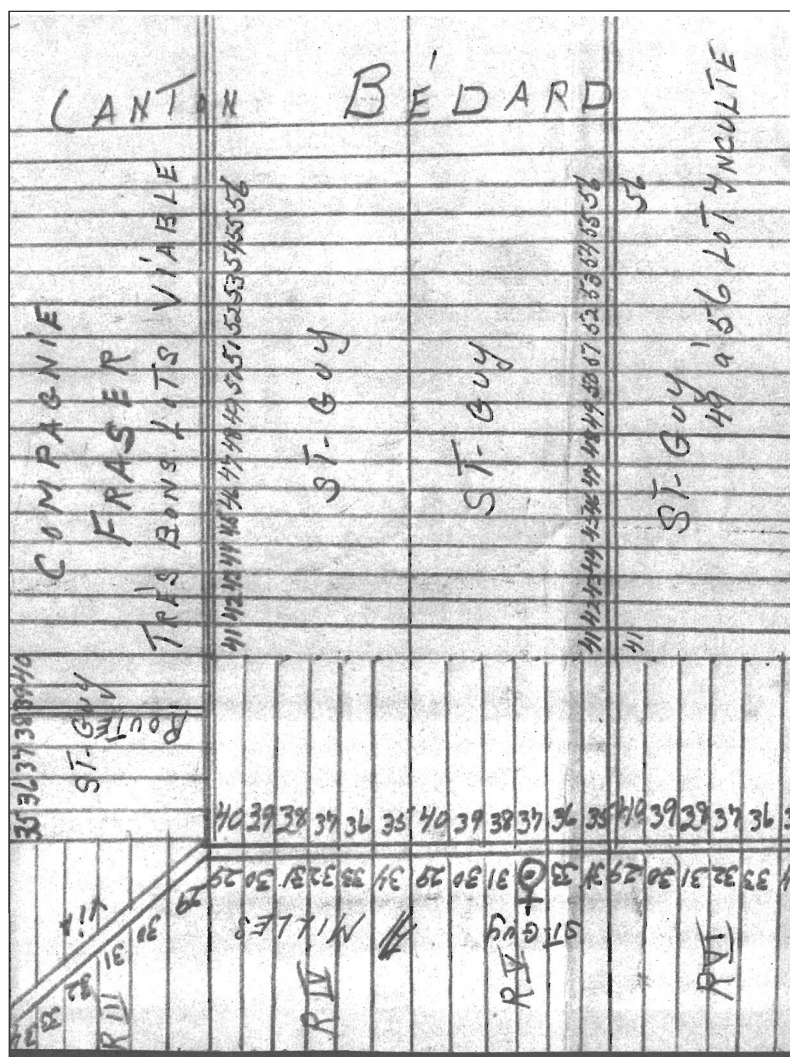 CANTON BÉDARD
COMPAGNIE
FRASER
TRÉS BONS LOTS VIABLE
41 42 43 44 45 46 47 48 49 50 51 52 53 54 55 56
ST-GUY
ST-GUY
41 42 43 44 45 46 47 48 49 50 51 52 53 54 55 56
41
56
ST-GUY
49 à 56 LOT YNCULTE
35 36 37 38 39 40
ST-GUY
ROUTE
40 39 38 37 36 35 40 39 38 37 36 35 40 39 38 37 36
29 30 31 32 33 34 29 30 31 33 34 29 30 31 32 33
29
30
31
32
33
34
MILLES
ST-GUY
R III
R IV
R V
R VI